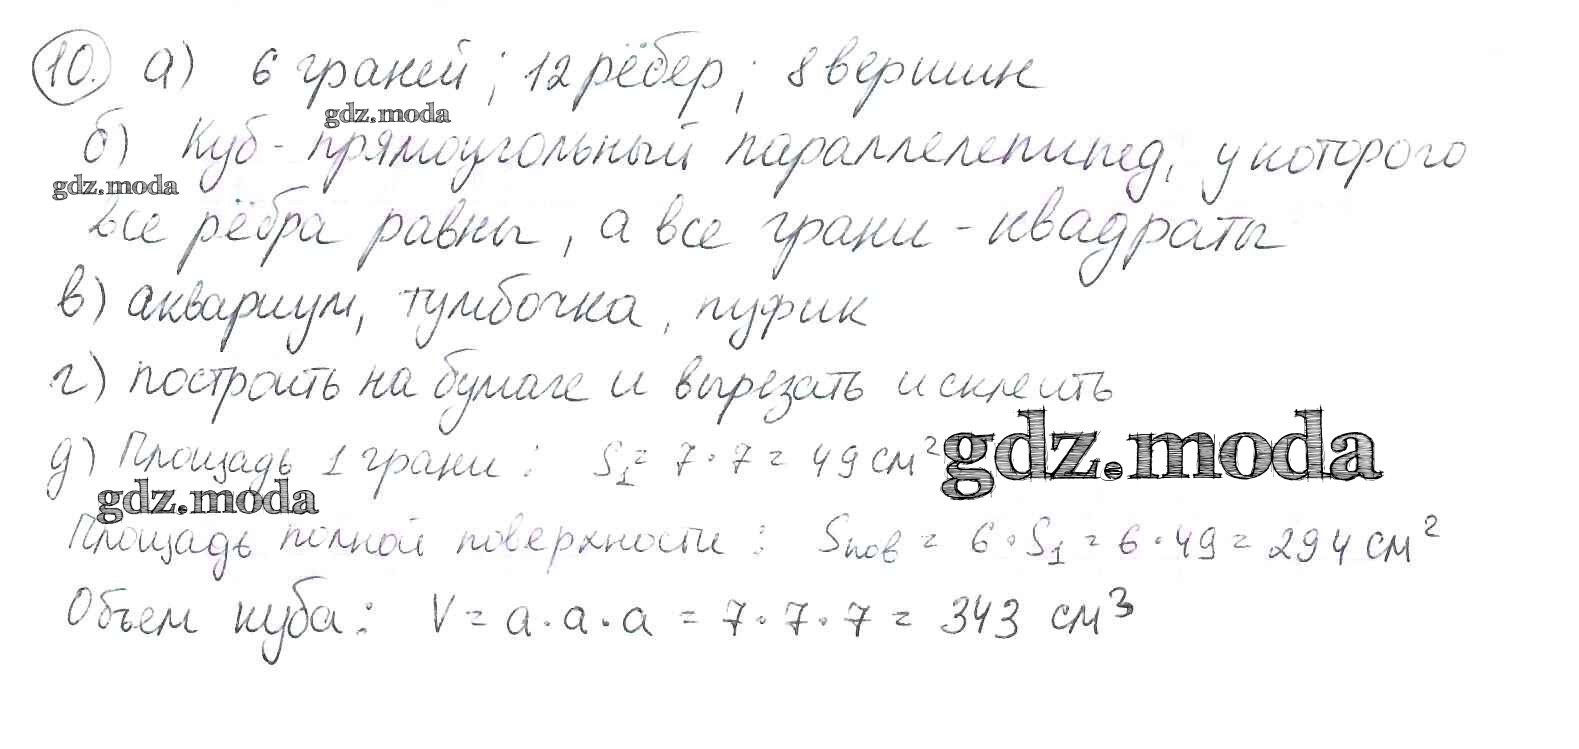 10. а) 6 граней; 12 рёбер; 8 вершин
gdz.moda
б) Куб - прямоугольный параллелепипед, у которого
gdz.moda
все рёбра равны, а все грани - квадраты
в) аквариум, тумбочка, пуфик
г) построить на бумаге и вырезать и склеить
gdz.moda
д) Площадь 1 грани: S₁ = 7 · 7 = 49 см²
gdz.moda
Площадь полной поверхности: Sпов = 6 · S₁ = 6 · 49 = 294 см²
Объем куба: V = a · a · a = 7 · 7 · 7 = 343 см³